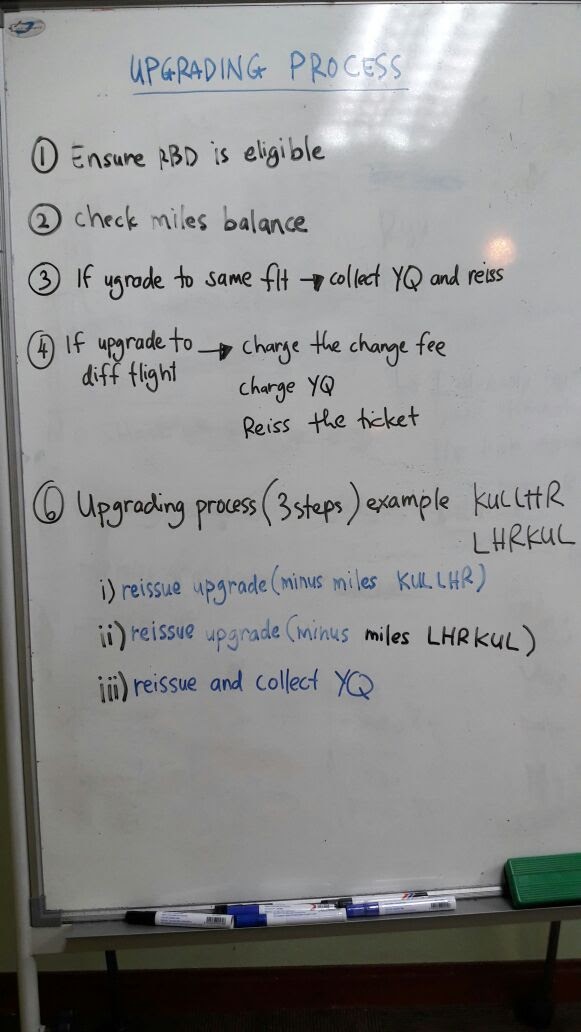 UPGRADING PROCESS
① Ensure RBD is eligible
② check miles balance
③ If ugrade to same flt → collect YQ and reiss
④ If upgrade to → charge the change fee
diff flight
charge YQ
Reiss the ticket
⑥ Upgrading process (3 steps) example KULLHR
LHRKUL
i) reissue upgrade (minus miles KULLHR)
ii) reissue upgrade (minus miles LHRKUL)
iii) reissue and collect YQ